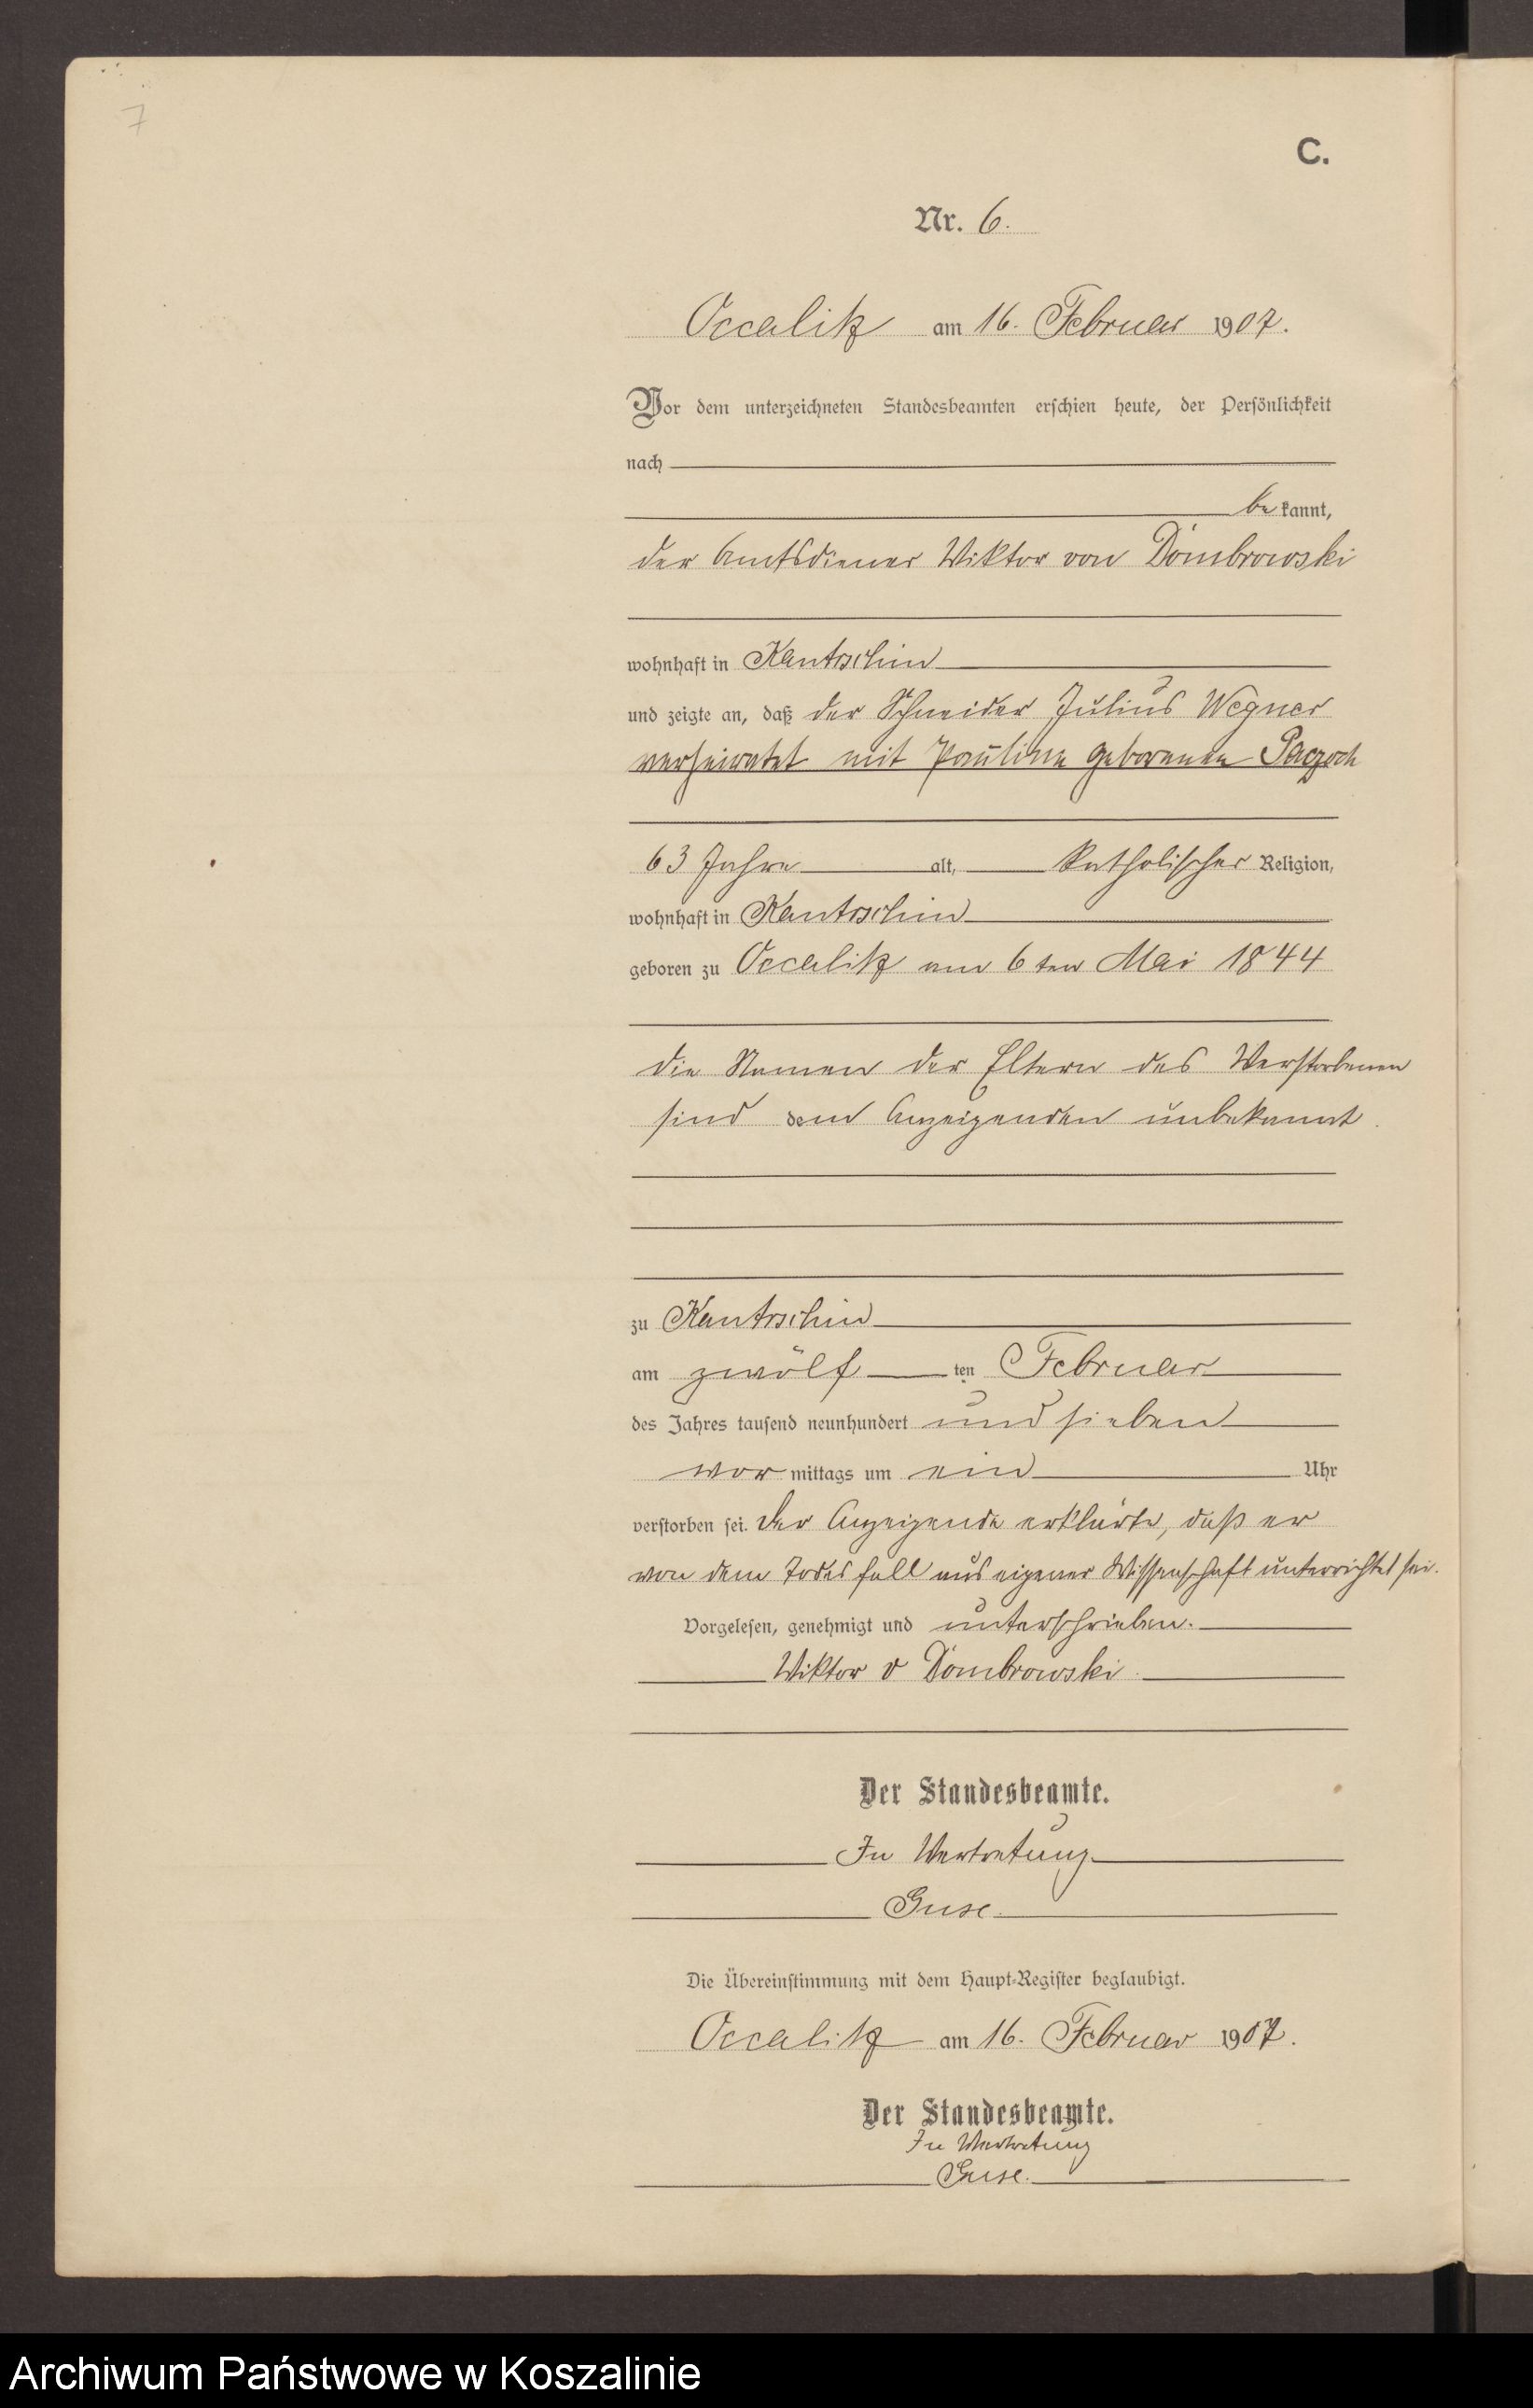 7
C.
Nr. 6.
Occalitz am 16. Februar 1907.
Vor dem unterzeichneten Standesbeamten erschien heute, der Persönlichkeit
nach
be kannt,
der Amtsdiener Wiktor von Dombrowski
wohnhaft in Kantrschin
und zeigte an, daß der Schneider Julius Wegner
verheiratet mit Pauline geborenen Paczoch
63 Jahre alt, katholischer Religion,
wohnhaft in Kantrschin
geboren zu Occalitz am 6ten Mai 1844
die Namen der Eltern des Verstorbenen
sind dem Anzeigenden unbekannt.
zu Kantrschin
am zwölf ten Februar
des Jahres tausend neunhundert und sieben
vor mittags um ein Uhr
verstorben sei. Der Anzeigende erklärte, daß er
von dem Todesfall aus eigener Wissenschaft unterrichtet sei.
Vorgelesen, genehmigt und unterschrieben.
Wiktor v Dombrowski.
Der Standesbeamte.
In Vertretung
Guse.
Die Übereinstimmung mit dem Haupt-Register beglaubigt.
Occalitz am 16. Februar 1907.
Der Standesbeamte.
In Vertretung
Guse.
Archiwum Państwowe w Koszalinie